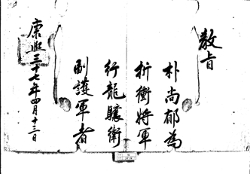 教旨
朴尚郁為
折衝將軍
行龍驤衛
副護軍者
康熙三十七年四月十三日